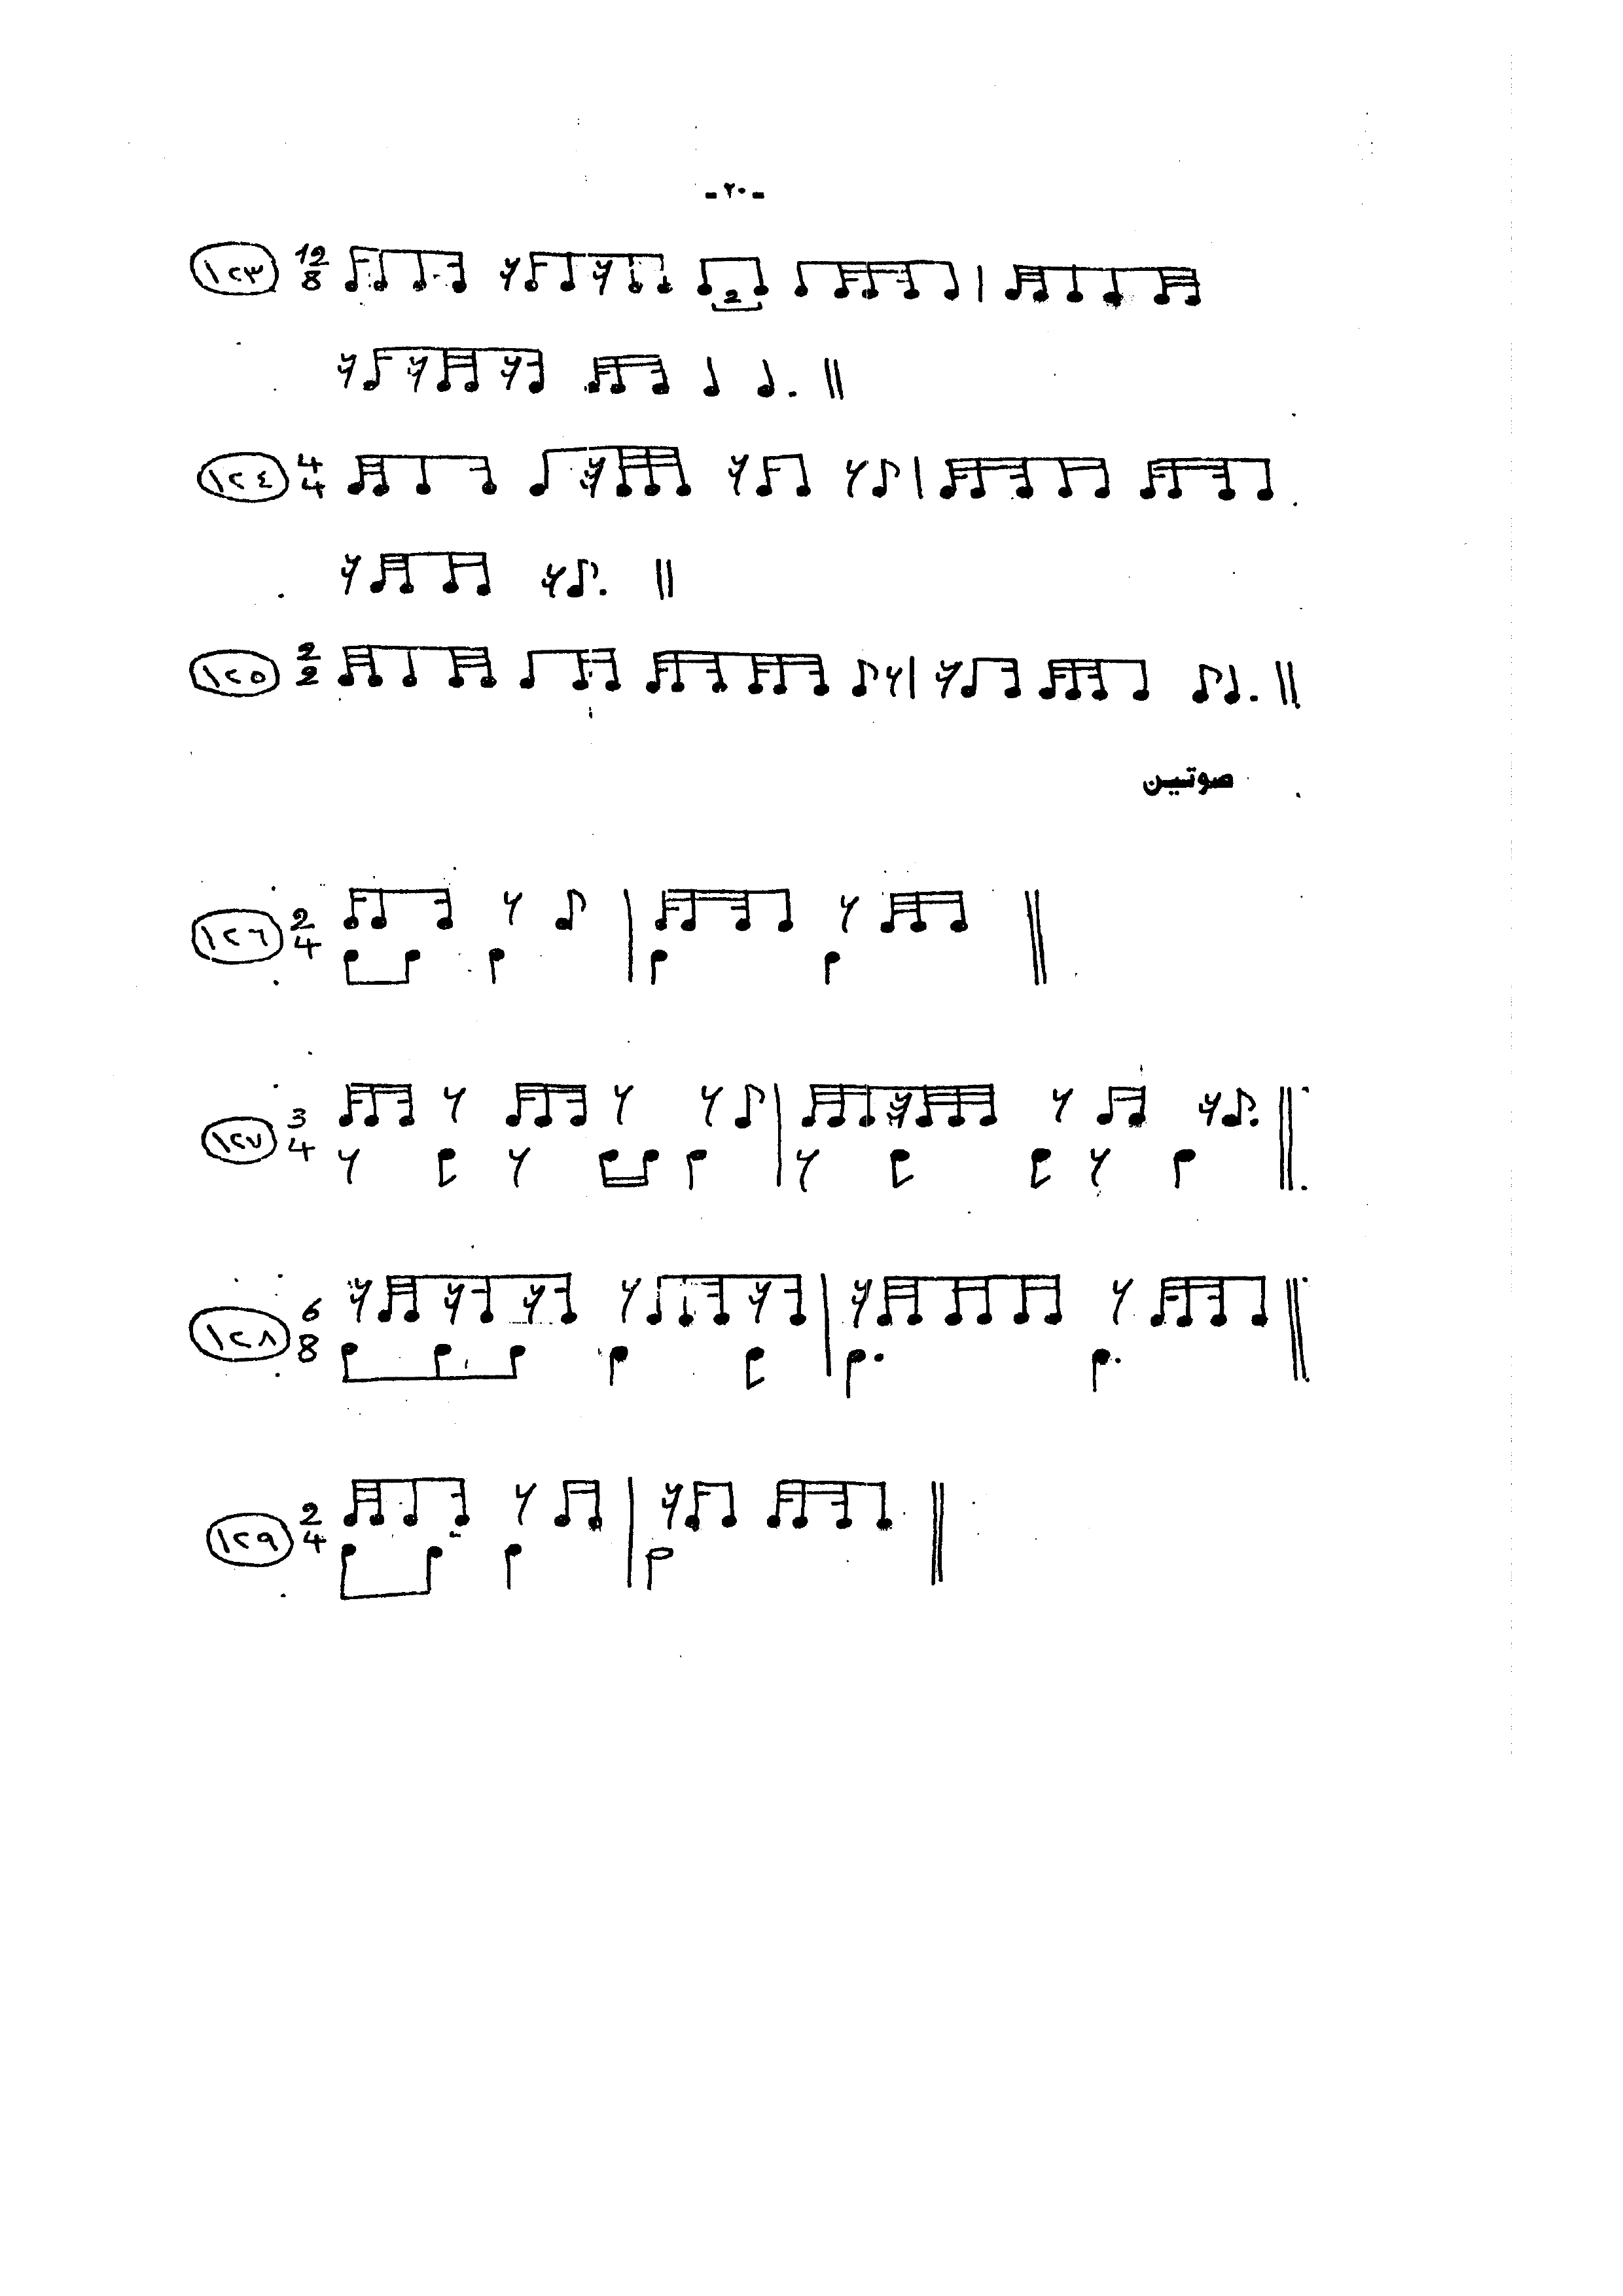 -٢٠-
١٢٣ 12
8
2
١٢٤ 4
4
١٢٥ 2
2
صوتين
١٢٦ 2
4
١٢٧ 3
4
١٢٨ 6
8
١٢٩ 2
4